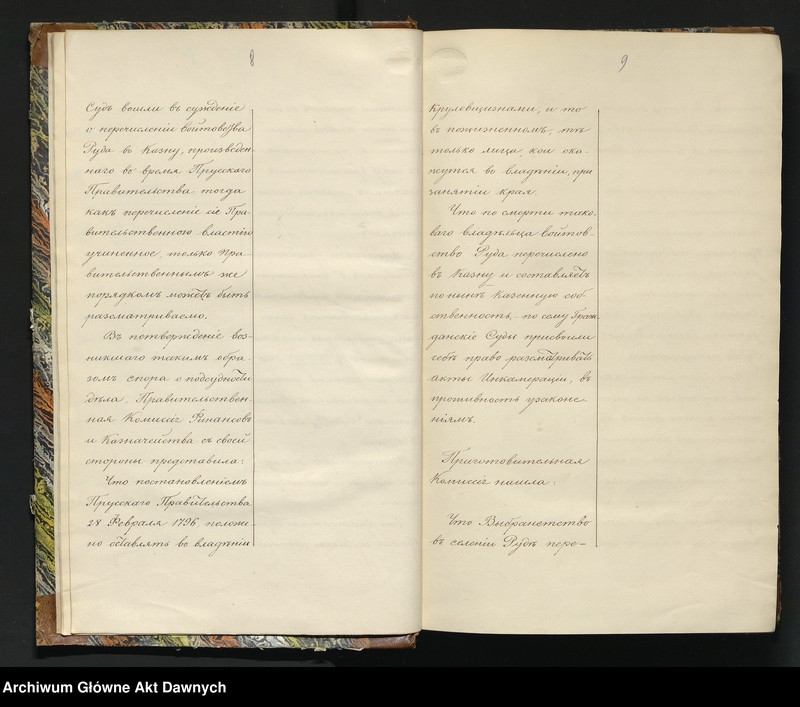 8
Судъ вошли въ сужденіе
о перечисленіи Войтовства
Руда въ Казну, произведен-
наго во время Прусскаго
Правительства тогда
какъ перечисленіе сіе Пра-
вительственною властію
учиненное, только Пра-
вительственнымъ же
порядкомъ можетъ быть
разсматриваемо.
Въ потвержденіе воз-
никшаго такимъ обра-
зомъ спора о подсудности
дѣла, Правительствен-
ная Комисія Финансовъ
и Казначейства съ своей
стороны представила:
Что постановленіемъ
Прусскаго Правительства
28 Февраля 1796, положе-
но оставлять во владѣніи
9
Крулевщизнами, и то
въ пожизненномъ, тѣ
только лица, кои ока-
жутся во владѣніи, при
занятіи края.
Что по смерти тако-
ваго владѣльца Войтов-
ство Руда перечислено
въ Казну и составляетъ
по нынѣ Казенную соб-
ственность, – по сему Граж-
данскіе Суды присвоили
себѣ право разсматривать
акты Инкамераціи, въ
противность узаконе-
ніямъ.
Приготовительная
Комисія нашла:
Что Выбранетство
въ селеніи Рудѣ пере-
Archiwum Główne Akt Dawnych